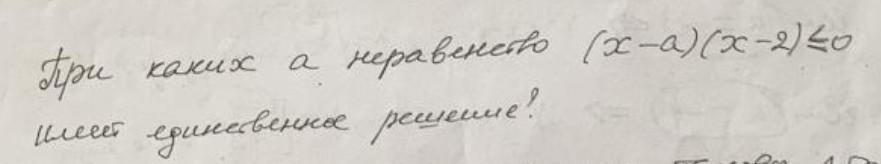 При каких a неравенство (x-a)(x-2)≤0
имеет единственное решение?